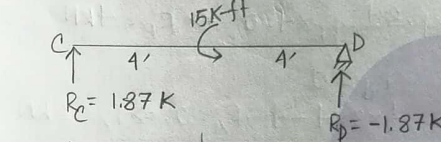 15K-ft
C D
4' 4'
R_C = 1.87 K
R_D = -1.87K